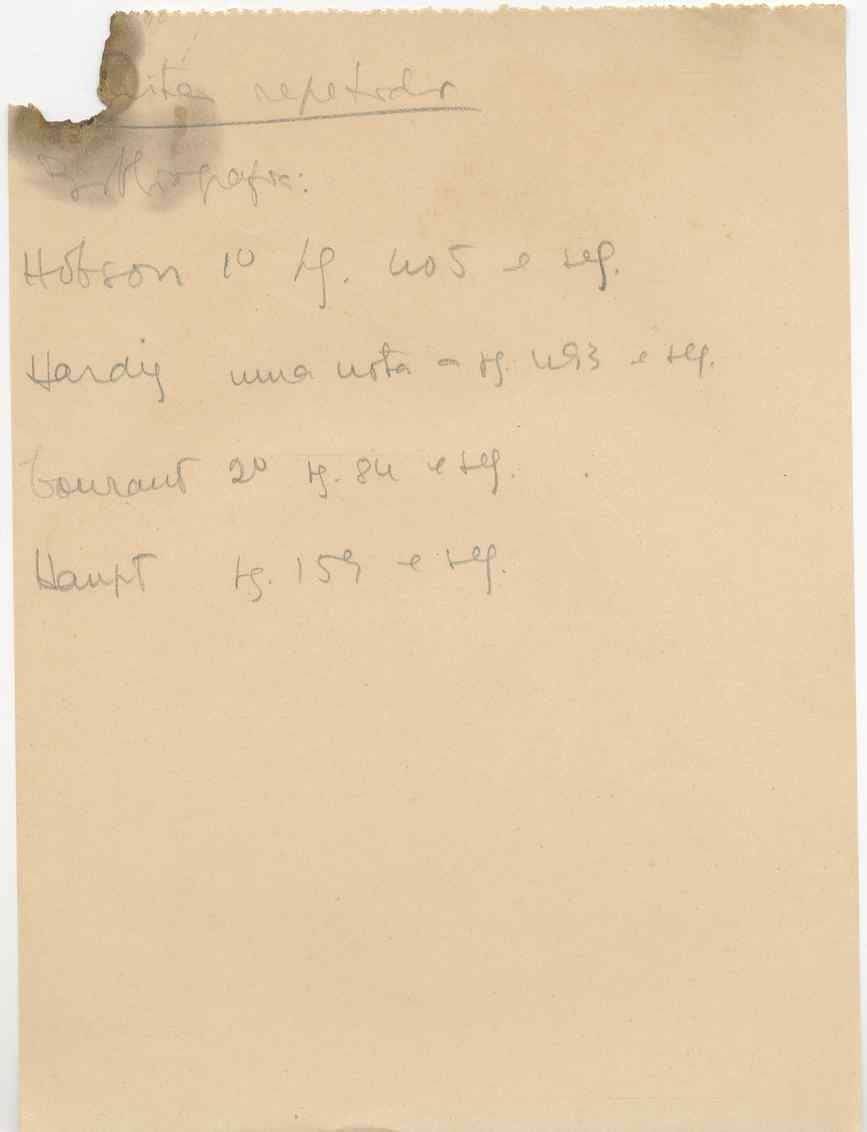 repetidos
Bibliografia:
Hobson 1º pg. 405 e seg.
Hardy uma nota a pg. 493 e seg.
Courant 2º pg. 84 e seg.
Haupt pg. 159 e seg.